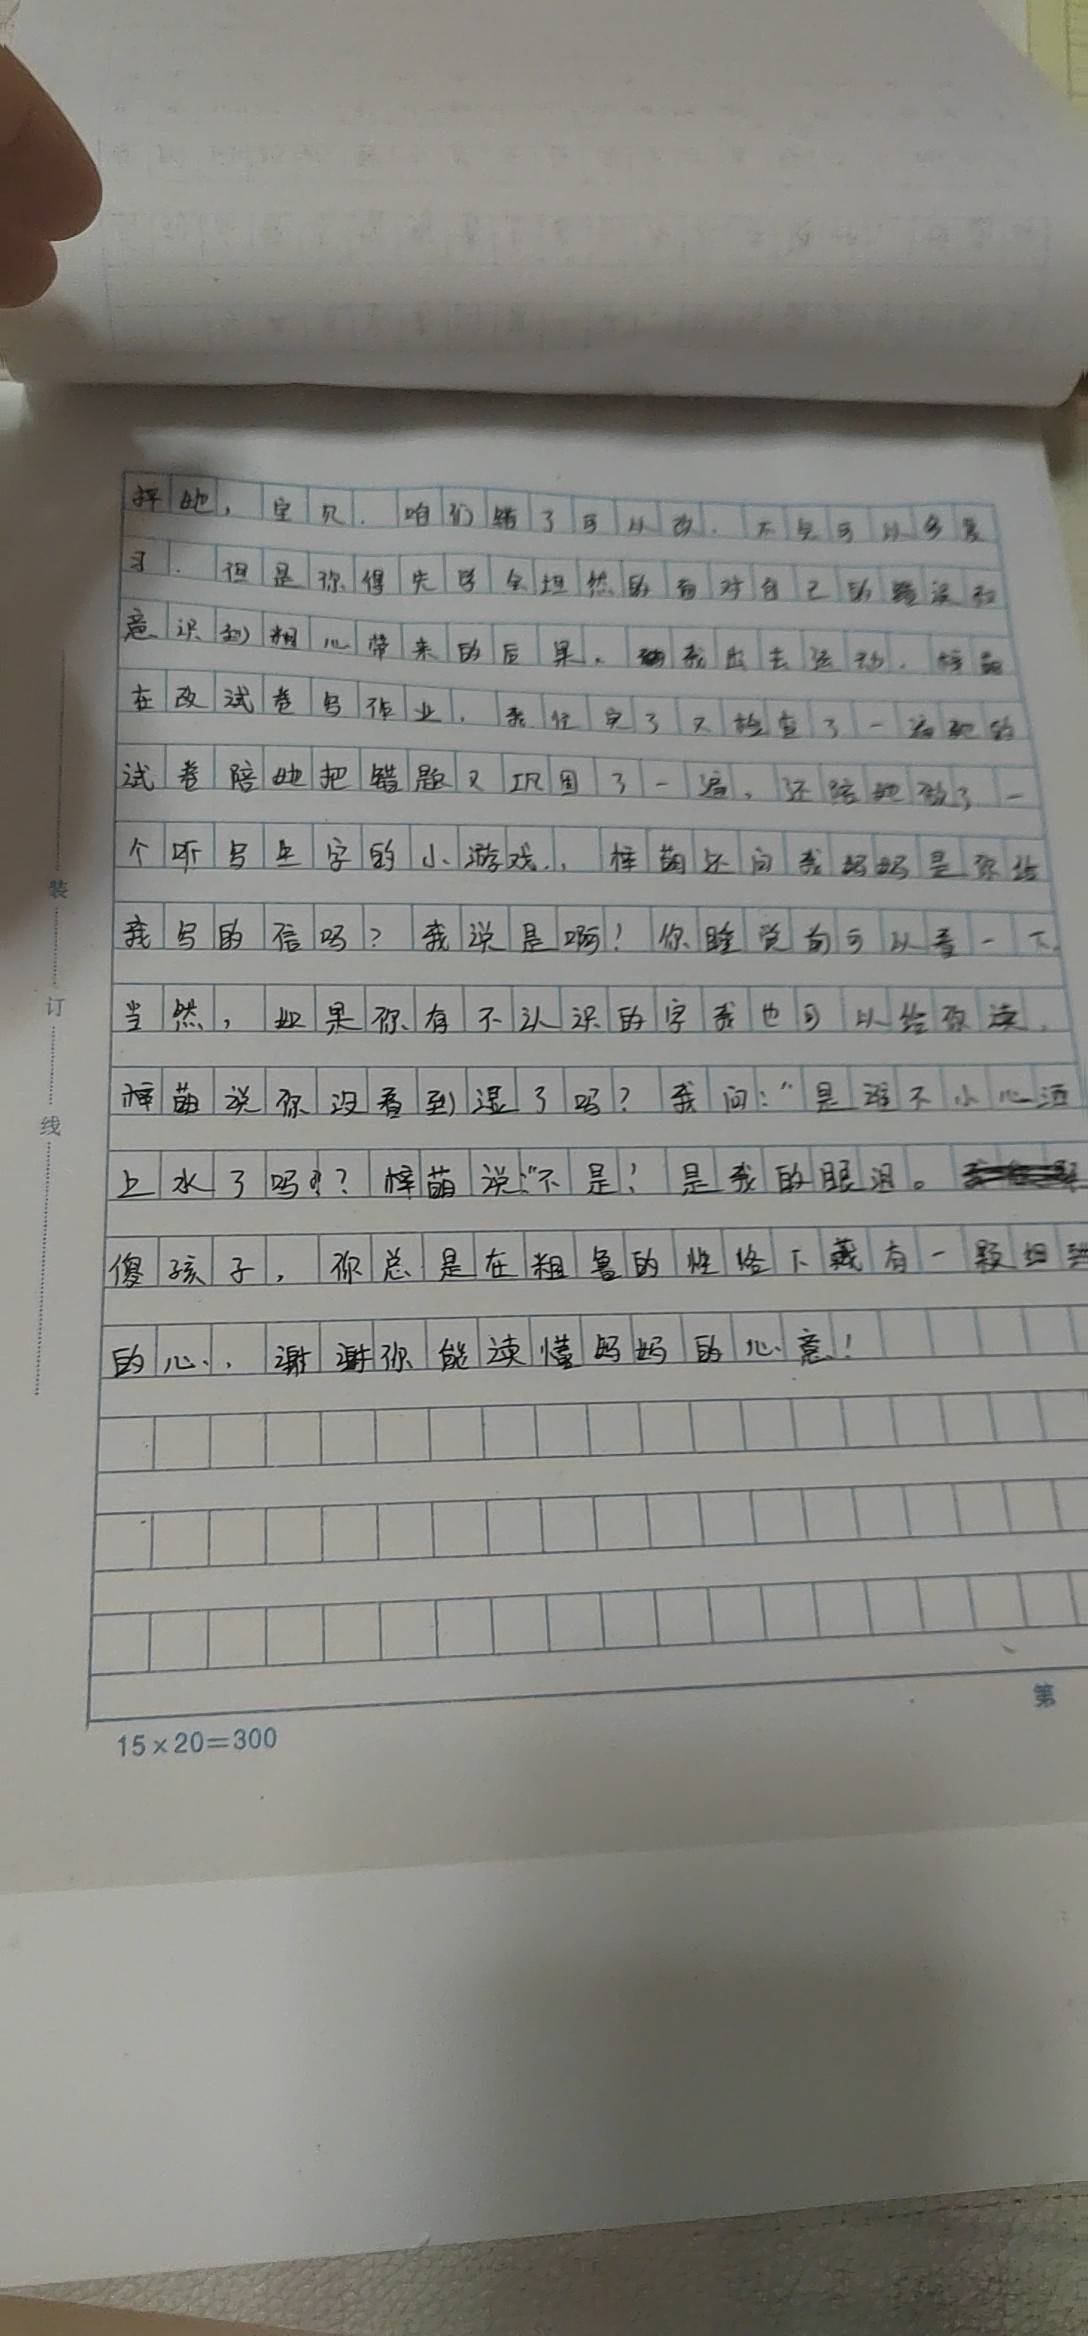 她，宝贝．咱们错了可以改．不会可以多复
习．但是你得先学会坦然的面对自己的错误和
意识到粗心带来的后果。我出去运动．梓萌
在改试卷写作业．我忙完了又检查了一遍她的
试卷陪她把错题又巩固了一遍，还陪她做了一
个听写生字的小游戏．，梓萌还问我妈妈是你给
我写的信吗？我说是啊！你睡觉前可以看一下．
当然，如果你有不认识的字我也可以给你读．
梓萌说你没看到湿了吗？我问：“是谁不小心洒
上水了吗？梓萌说：“不是！是我的眼泪。
傻孩子，你总是在粗鲁的性格下藏有一颗细
的心．，谢谢你能读懂妈妈的心意！
装
订
线
15×20＝300
第